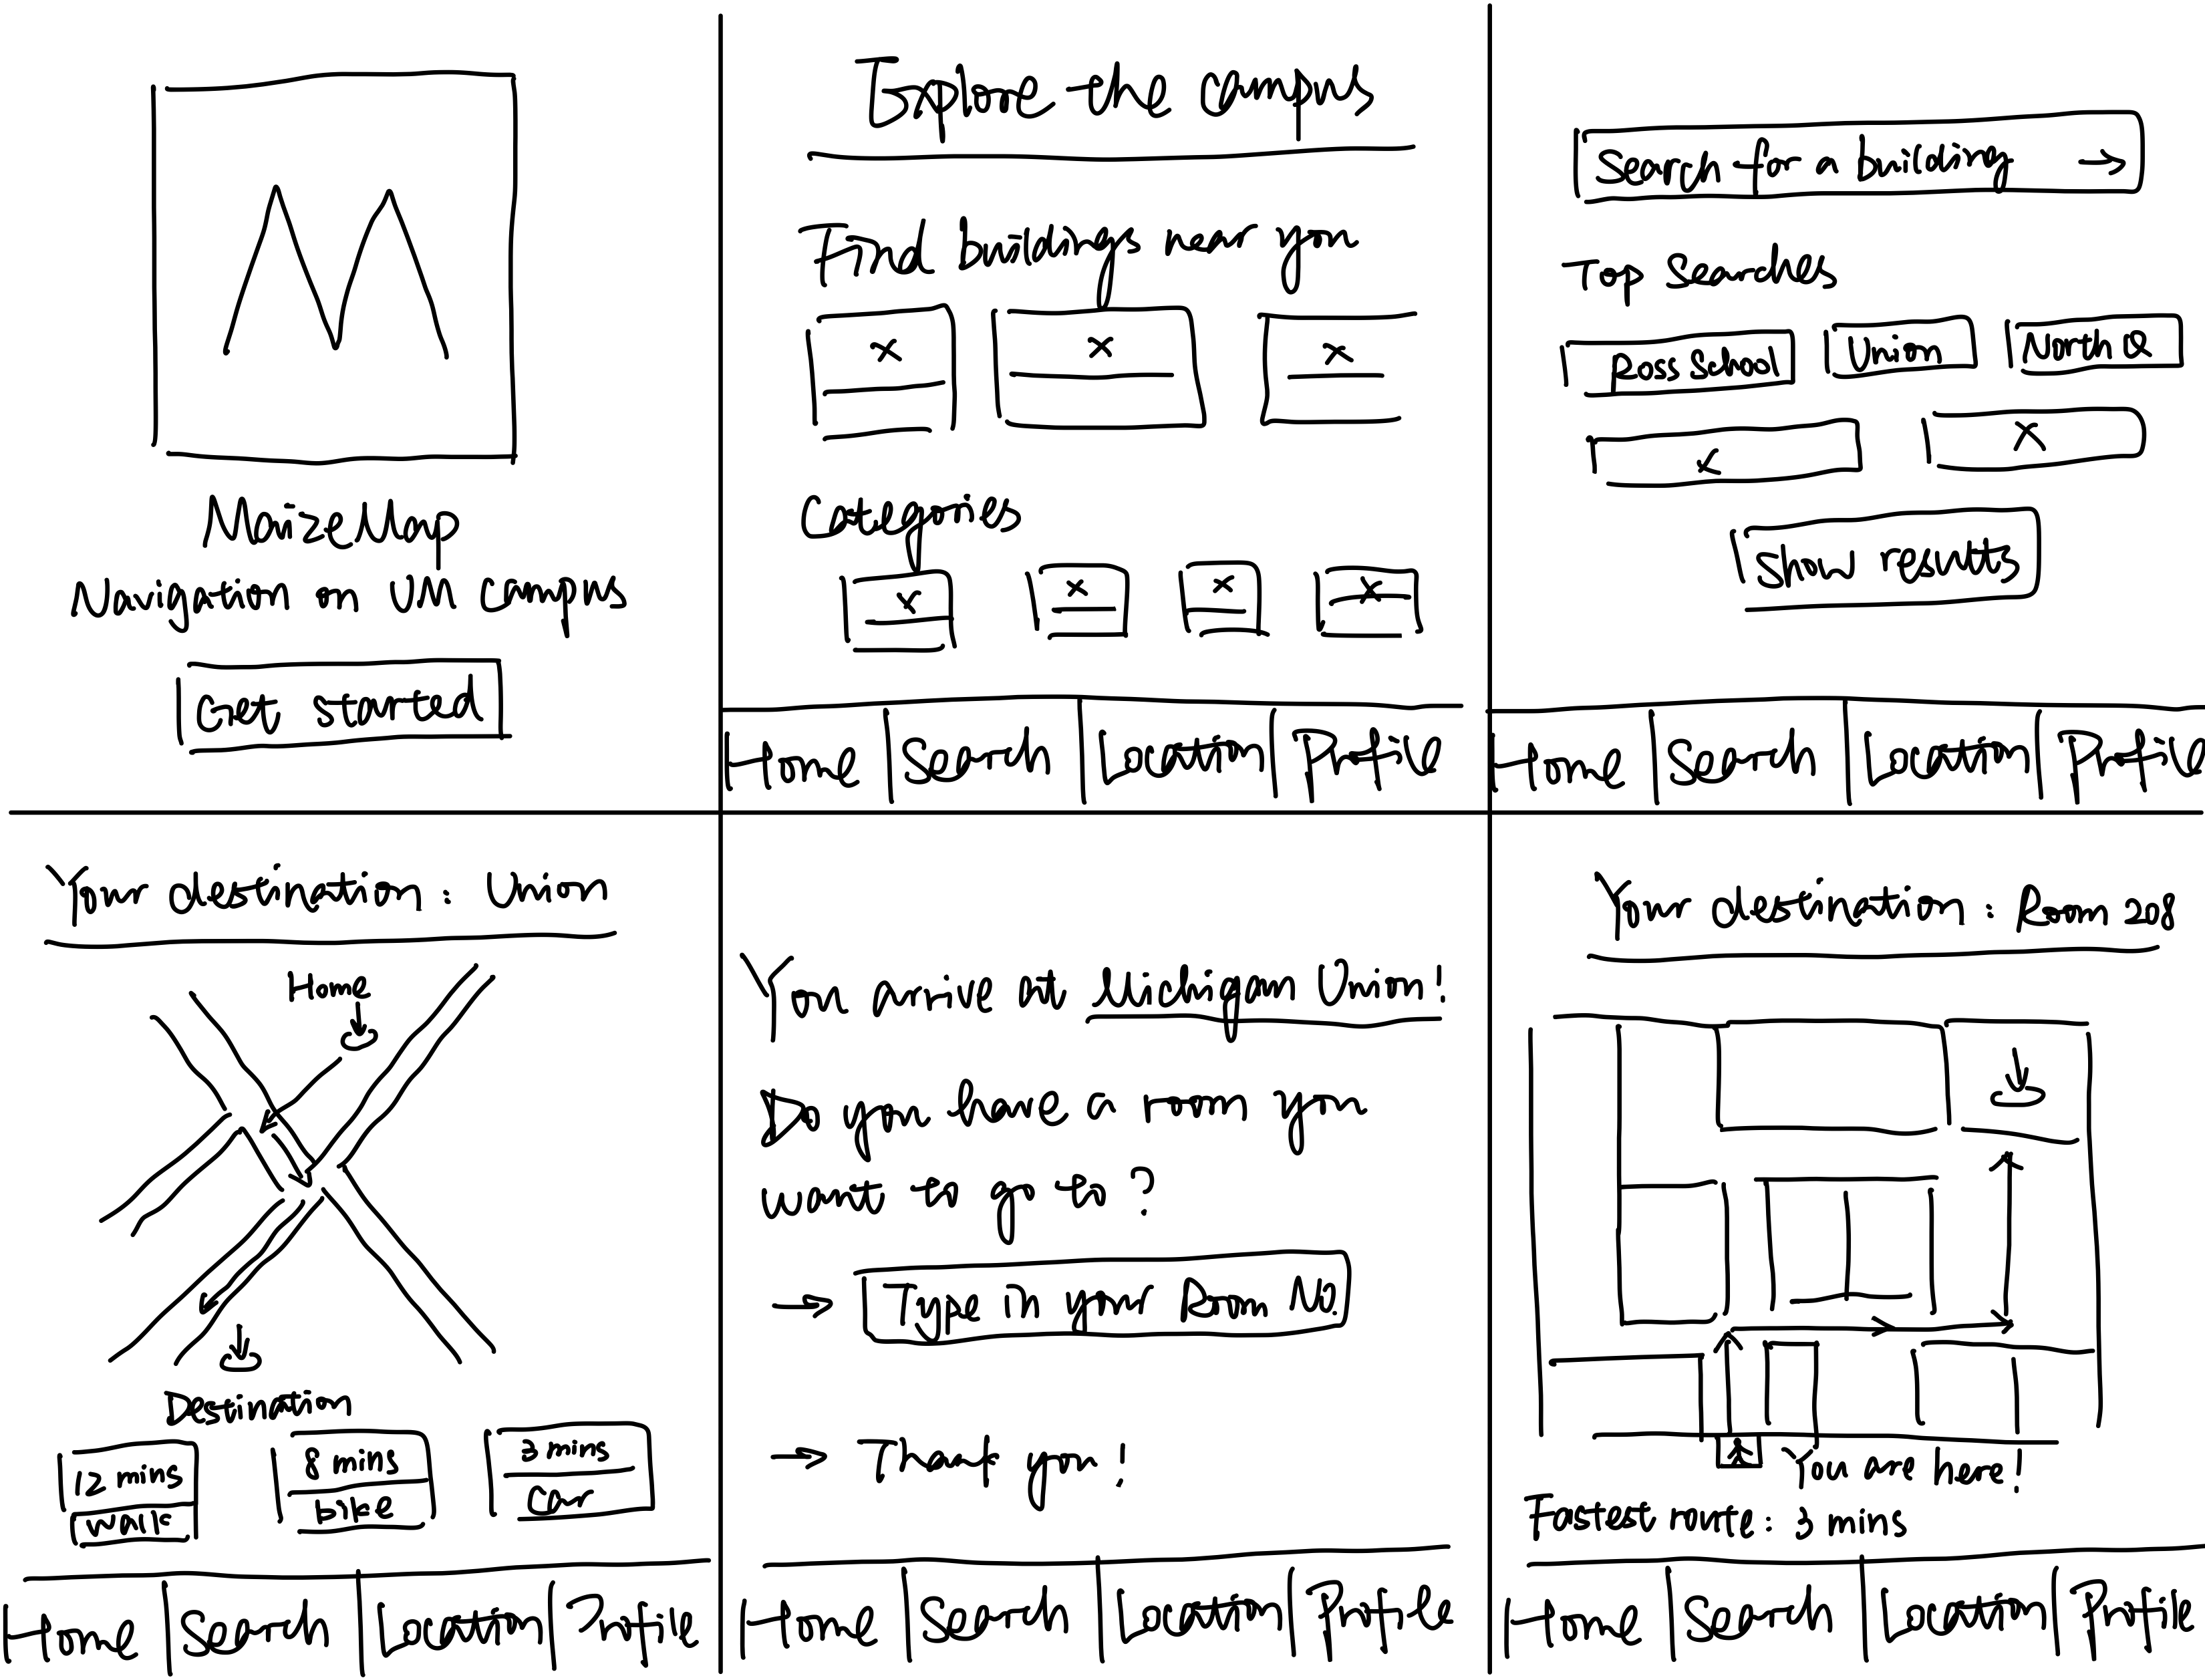 M
MaizeMap
Navigation on UM Campus
Get started
Explore the campus
Find buildings near you
Categories
Home Search Location Profile
Search for a building →
Top searches
Ross School Union North Q
Show results
Home Search Location Profile
Your destination: Union
Home
Destination
12 mins
walk
8 mins
bike
3 mins
Car
Home Search Location Profile
You arrive at Michigan Union!
Do you have a room you
want to go to?
→ Type in your Room No.
→ Thank you!
Home Search Location Profile
Your destination: Room 208
You are here!
Fastest route: 3 mins
Home Search Location Profile